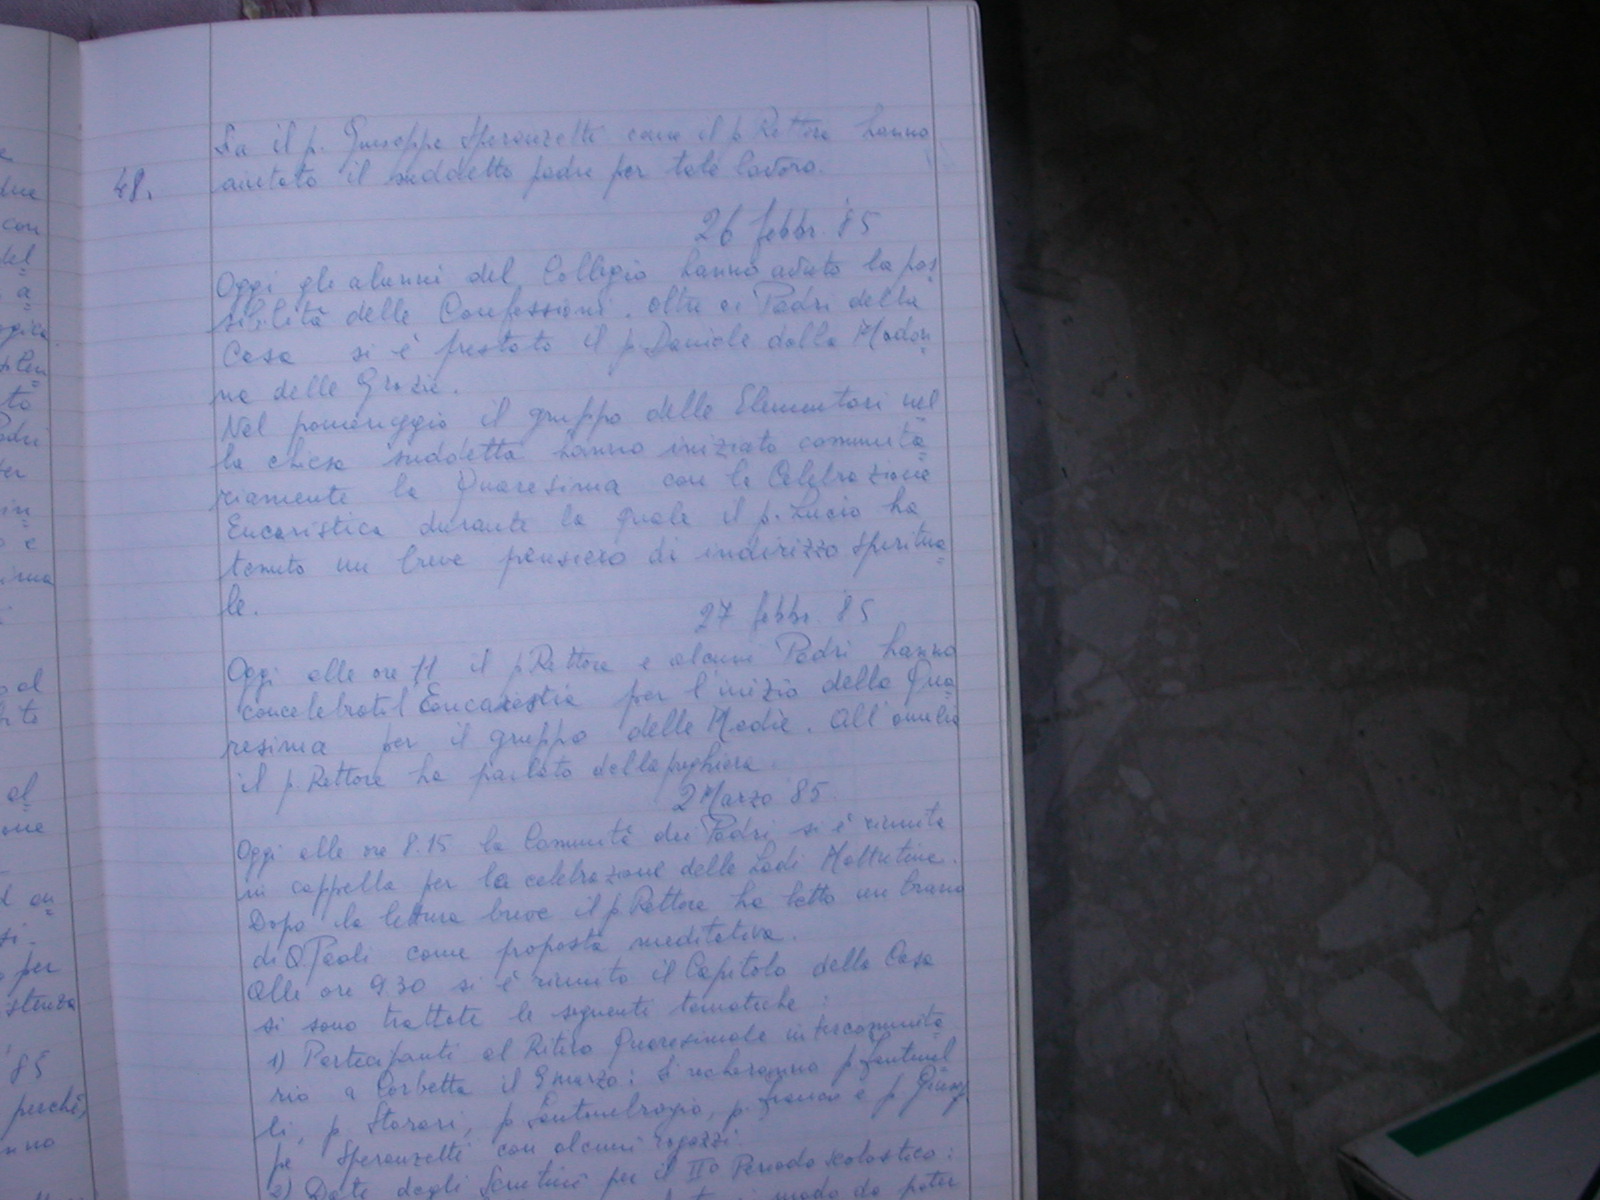 Sia il p. Giuseppe Speranzetti come il p. Rettore hanno
48.
aiutato il suddetto padre per tale lavoro.
26 febbr. '85
Oggi gli alunni del Collegio hanno avuto la pos
sibilità delle Confessioni. Oltre ai Padri della
Casa si è prestato il p. Daniele della Madon
na delle Grazie.
Nel pomeriggio il gruppo delle Elementari nel
la chiesa suddetta hanno iniziato comunita
riamente la Quaresima con la Celebrazione
Eucaristica durante la quale il p. Lucio ha
tenuto un breve pensiero di indirizzo spiritua
le.
27 febbr. '85
Oggi alle ore 11 il p. Rettore e alcuni Padri hanno
concelebrato l'Eucarestia per l'inizio della Qua
resima per il gruppo delle Medie. All'omelia
il p. Rettore ha parlato della preghiera.
2 Marzo '85.
Oggi alle ore 8.15 la Comunità dei Padri si è riunita
in cappella per la celebrazione delle Lodi Mattutine.
Dopo la lettura breve il p. Rettore ha letto un brano
di Paoli come proposta meditativa.
Alle ore 9.30 si è riunito il Capitolo della Casa
si sono trattate le seguenti tematiche:
1) Partecipanti al Ritiro Quaresimale intercomunita
rio a Corbetta il 9 marzo: Si recheranno p. Fontanel
li, p. Storari, p. Santambrogio, p. Franco e p. Giusep
pe Speranzetti con alcuni ragazzi.
2) Date degli Scrutini per il II° Periodo scolastico:
modo da poter